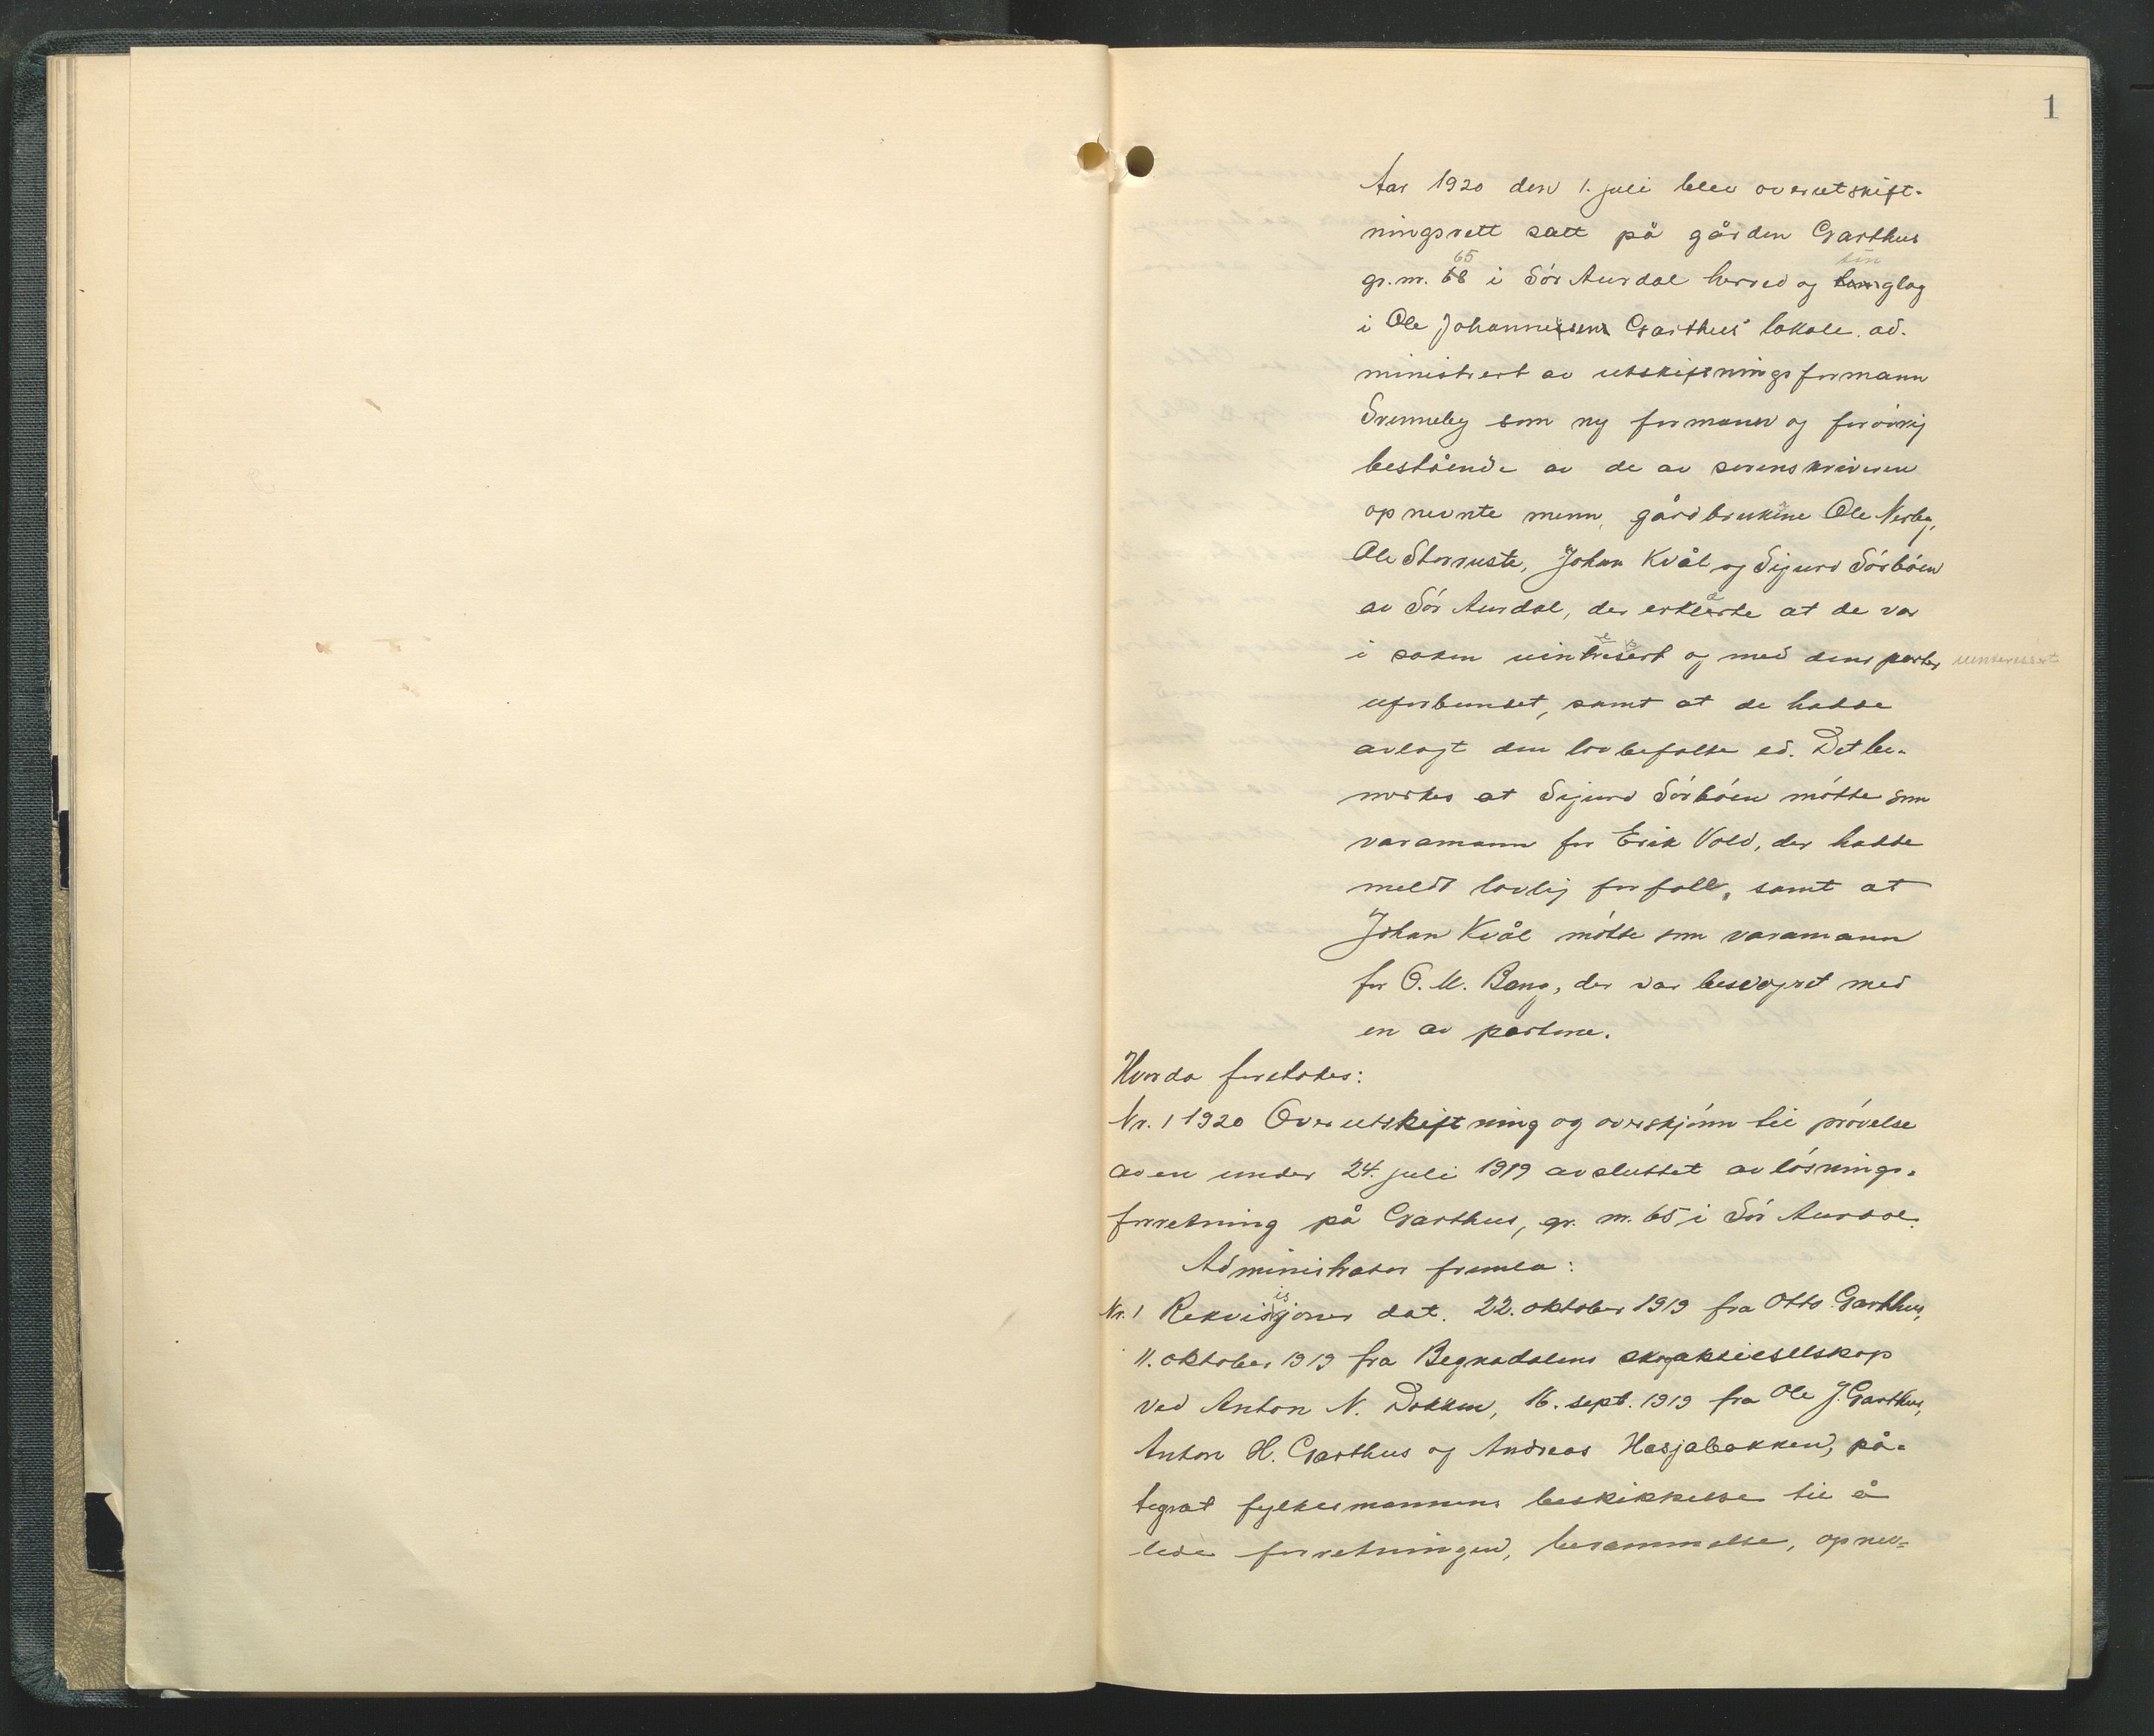 1
Aar 1920 den 1. juli blev overutskift-
ningsrett satt på gården Garthus
gr.nr. 65 i Sør Aurdal herred og tinglag
i Ole Johannessens Garthus' lokale, ad-
ministrert av utskiftningsformann
Svenneby som ny formann og forøvrig
bestående av de av sorenskriveren
opnevnte menn, gårdbrukerne Ole Nerby,
Ole Storruste, Johan Kvål og Sigurd Sørbøen
av Sør Aurdal, der erklærte at de var
i saken uinteressert og med dens parter uinteressert
uforbundet, samt at de hadde
avlagt den lovbefalte ed. Det be-
merkes at Sigurd Sørbøen møtte som
varamann for Erik Vold, der hadde
meldt lovlig forfall, samt at
Johan Kvål møtte som varamann
for O. M. Bang, der var besvogret med
en av partene.
Hvorda foretokes:
Nr. 1 1920 Overutskiftning og overskjønn til prøvelse
av en under 24. juli 1919 avsluttet avløsnings-
forretning på Garthus, gr. nr. 65 i Sør Aurdal.
Administrator fremla:
Nr. 1 Rekvisisjoner dat. 22. oktober 1919 fra Otto Garthus,
11. oktober 1919 fra Begnadalens skogaktieselskap
ved Anton N. Dokken, 16. sept. 1919 fra Ole J. Garthus,
Anton H. Garthus og Andreas Hasjabakken, på-
tegnet fylkesmannens beskikkelse til å
lede forretningen, berammelse, opnev-